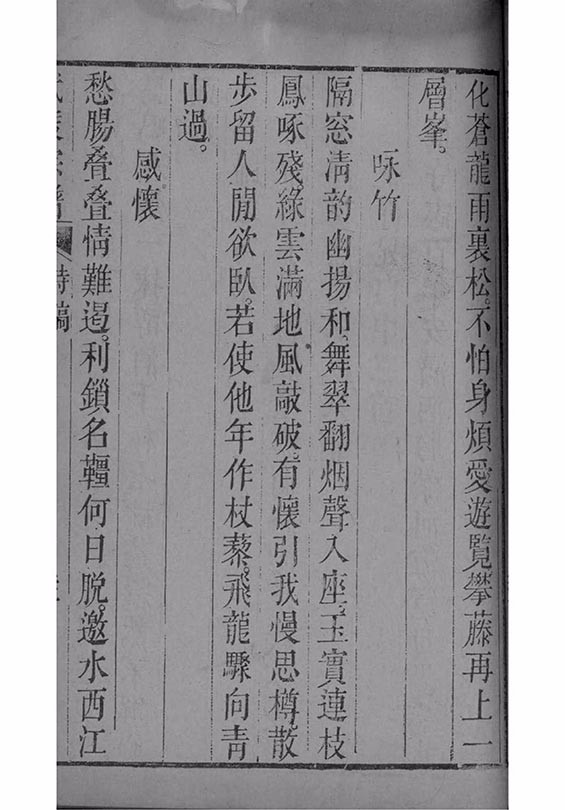 化蒼龍雨裏松。不怕身煩愛遊覧攀藤再上一
層峯。
咏竹
隔窓清韵幽揚和。舞翠翻烟聲入座。玉實連枝
鳳啄殘。綠雲滿地風敲破。有懷引我慢思樽。散
步留人閒欲臥。若使他年作杖藜。飛龍驟向青
山過。
感懷
愁腸叠叠情難遏。利鎖名韁何日脫。邀水西江
詩稿